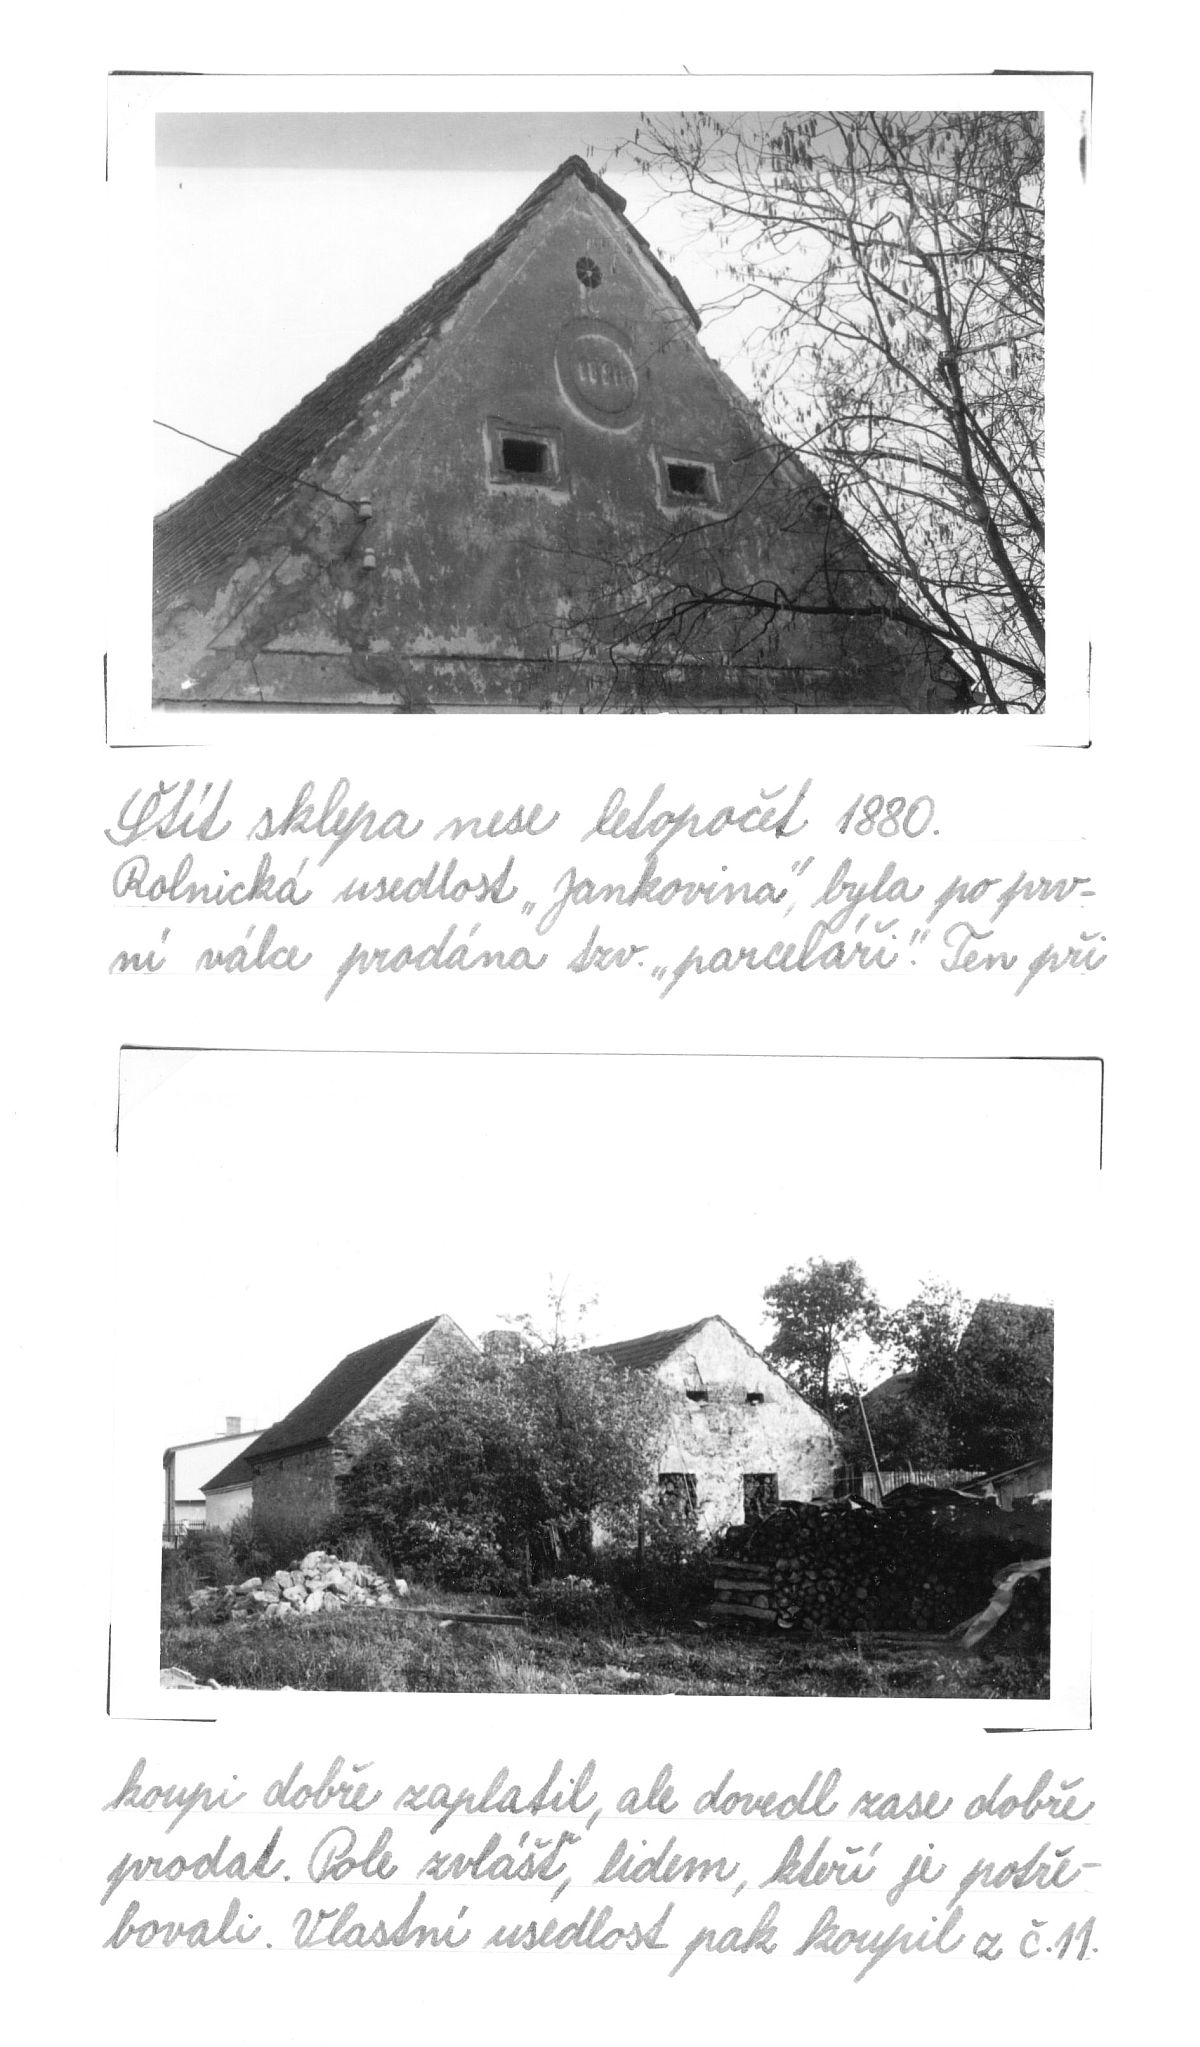 Štít sklepa nese letopočet 1880.
Rolnická usedlost „Jankovina“, byla po prv-
ní válce prodána tzv. „parceláři“. Ten při
koupi dobře zaplatil, ale dovedl zase dobře
prodat. Pole zvlášť, lidem, kteří je potře-
bovali. Vlastní usedlost pak koupil z č. 11.